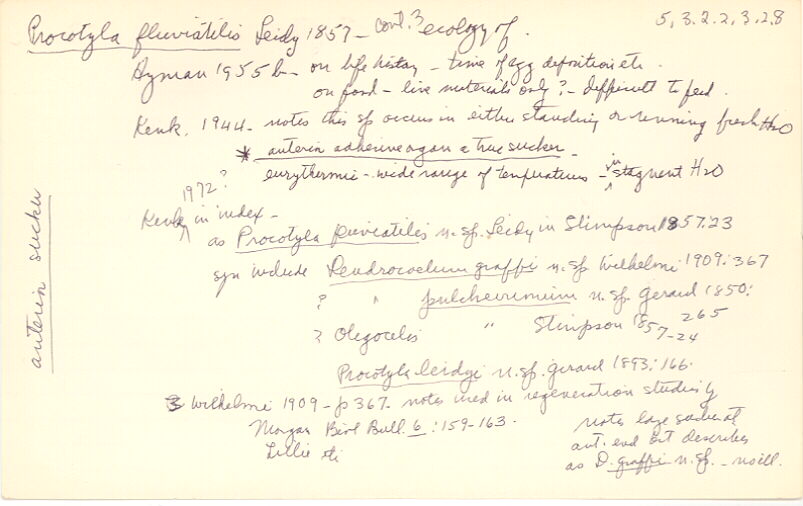 5, 3.2.2.3.28
Procotyla fluviatilis Leidy 1857 - cont. 3 ecology of.
Hyman 1955 b - on life history - time of egg deposition etc.
on food - live materials only? - difficult to feed.
Kenk, 1944 - notes this sp occurs in either standing or running fresh H2O
* anterior adhesive organ a true sucker -
eurythermic - wide range of temperatures - in stagnant H2O
1972?
Kenk in index -
as Procotyla fluviatilis n. sp. Leidy in Stimpson 1857:23
syn include Dendrocoelum graffi n. sp. Wilhelmi 1909:367
? " pulcherrimum n. sp. Gerard 1850:
265
? Oligocelis " Stimpson 1857-24
Procotyla leidyi n. sp. Gerard 1893:166.
3 Wilhelmi 1909 - p 367 - notes used in regeneration studies by
Morgan Biol Bull. 6:159-163.
Lillie
notes large sucker at
ant. end but describes
as D. graffi n. sp. - no ill.
anterior sucker